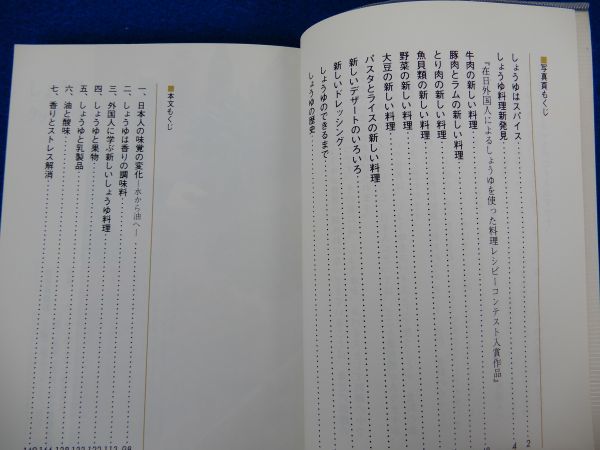 ■写真頁もくじ
しょうゆはスパイス……2
しょうゆ料理新発見……4
『在日外国人によるしょうゆを使った料理レシピーコンテスト入賞作品』
牛肉の新しい料理
豚肉とラムの新しい料理
とり肉の新しい料理
魚貝類の新しい料理
野菜の新しい料理
大豆の新しい料理
パスタとライスの新しい料理
新しいデザートのいろいろ
新しいドレッシング
しょうゆのできるまで
しょうゆの歴史
■本文もくじ
一、日本人の味覚の変化―水から油へ―
二、しょうゆは香りの調味料
三、外国人に学ぶ新しいしょうゆ料理
四、しょうゆと果物
五、しょうゆと乳製品
六、油と酸味
七、香りとストレス解消